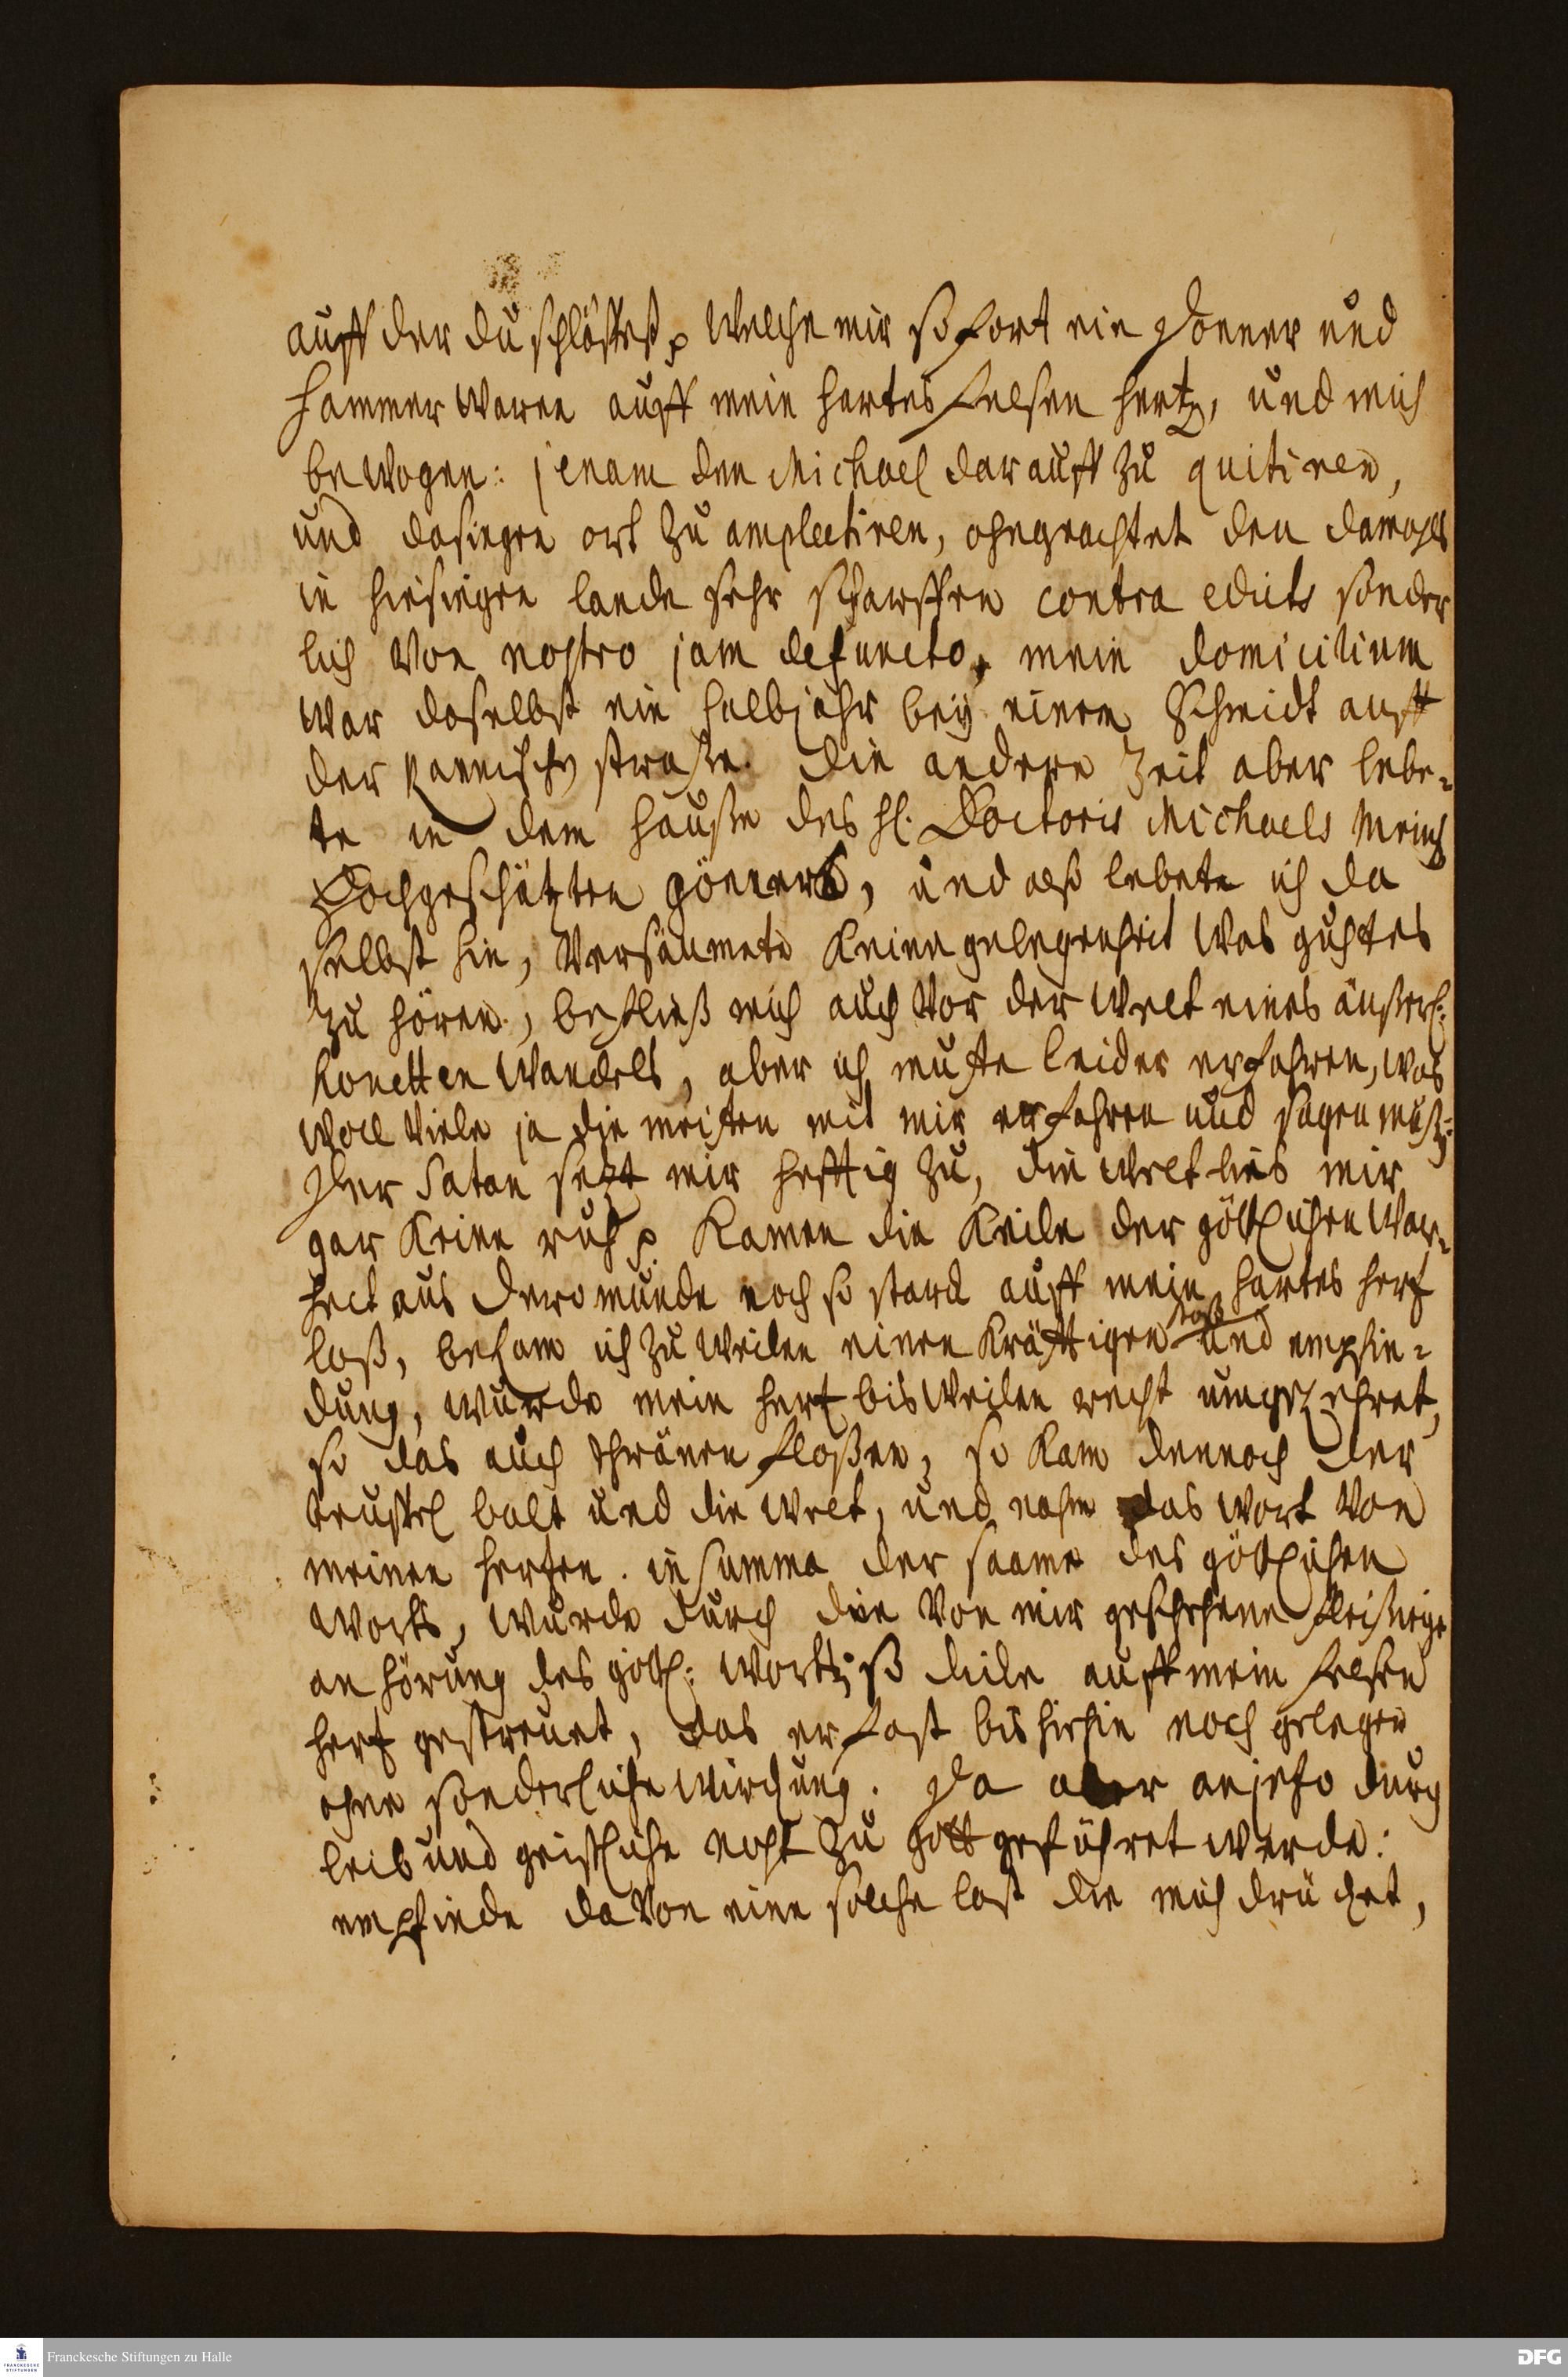 auff der du schläffest, Welche mir so fort ein Donner und
hammer Waren auff mein hartes felsen hertz, und mich
bewogen: jenam den Michael darauff zu quitiren,
und dasigen ort zu amplectiren, ohngeachtet den damahls
in hiesigen lande sehr scharffen contra edicts sonder
lich Von nostro jam defuncto, mein domicilium
War daselbst ein halb jahr bey einem Schmidt auff
der Rannischen straße. Die andere Zeit aber lebe-
te in dem hauße des H. Doctoris Michaels Meines
Hochgeschätzten gönners, und also lebete ich da
selbst hin, Versäumete keine gelegenheit Was guhtes
zu hören, befließ mich auch Vor der Welt eines äußerl:
honetten Wandels, aber ich muste leider erfahren, Was
Woll Viele ja die meisten mit mir erfahren und sagen müßen:
Der Satan setzt mir hefftig zu, die Welt lies mir
gar keine ruh p. Kamen die Keile der göttlichen War-
heit aus Dero munde noch so starck auff mein hartes hertz
loß, bekam ich zu Weilen einen kräfftigen stoß und empfin-
dung, wurde mein hertz bisWeilen recht umgekehret,
so das auch thränen floßen, so kam dennoch der
teuffel balt und die Welt, und nahm das Wort Von
meinen hertzen. in summa der saame des göttlichen
Worts, wurde durch die Von mir geschehene fleißige
an hörung des göttl: Wortes so viele auff mein felsen
hertz gestreuet, das er fast bis hiehin noch gelegen
ohne sonderliche Wirckung. Da aber anjetzo durch
leib und geistliche noht zu Gott geführet werde:
empfinde da Von eine solche last die mich drücket,
Franckesche Stiftungen zu Halle
DFG